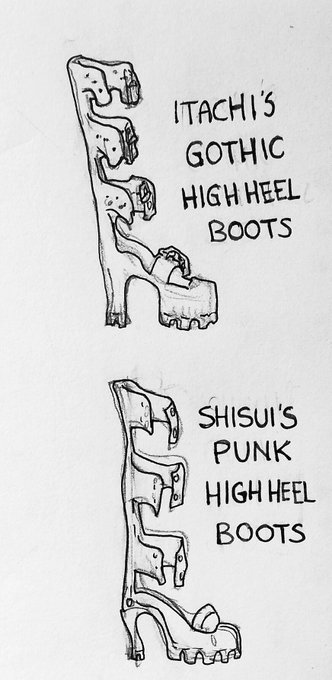 ITACHI'S
GOTHIC
HIGH HEEL
BOOTS
SHISUI'S
PUNK
HIGH HEEL
BOOTS